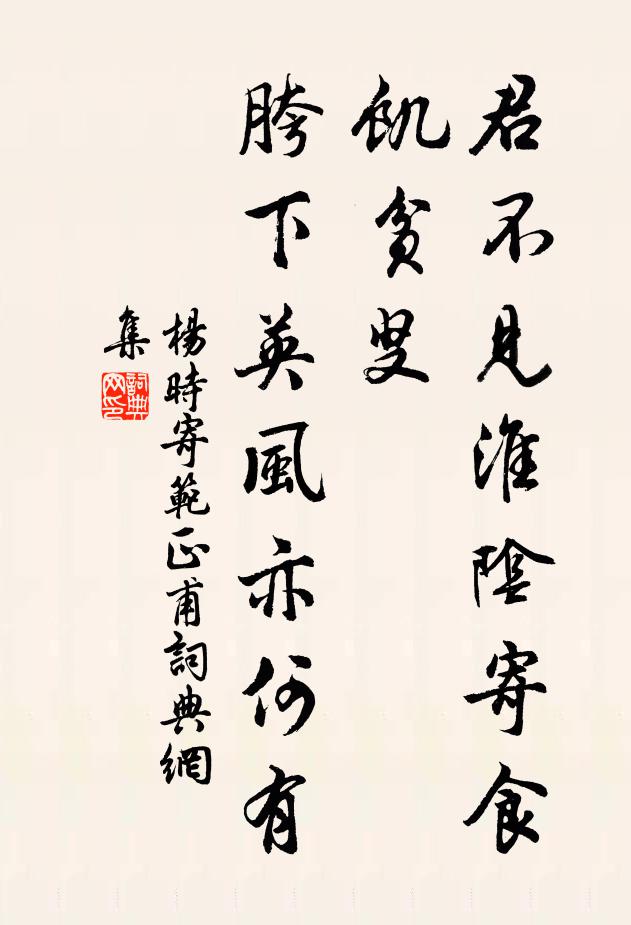 君不見淮陰寄食
飢貧叟
胯下英風亦何有
楊時寄範正甫詞典網
集
詞典
网印